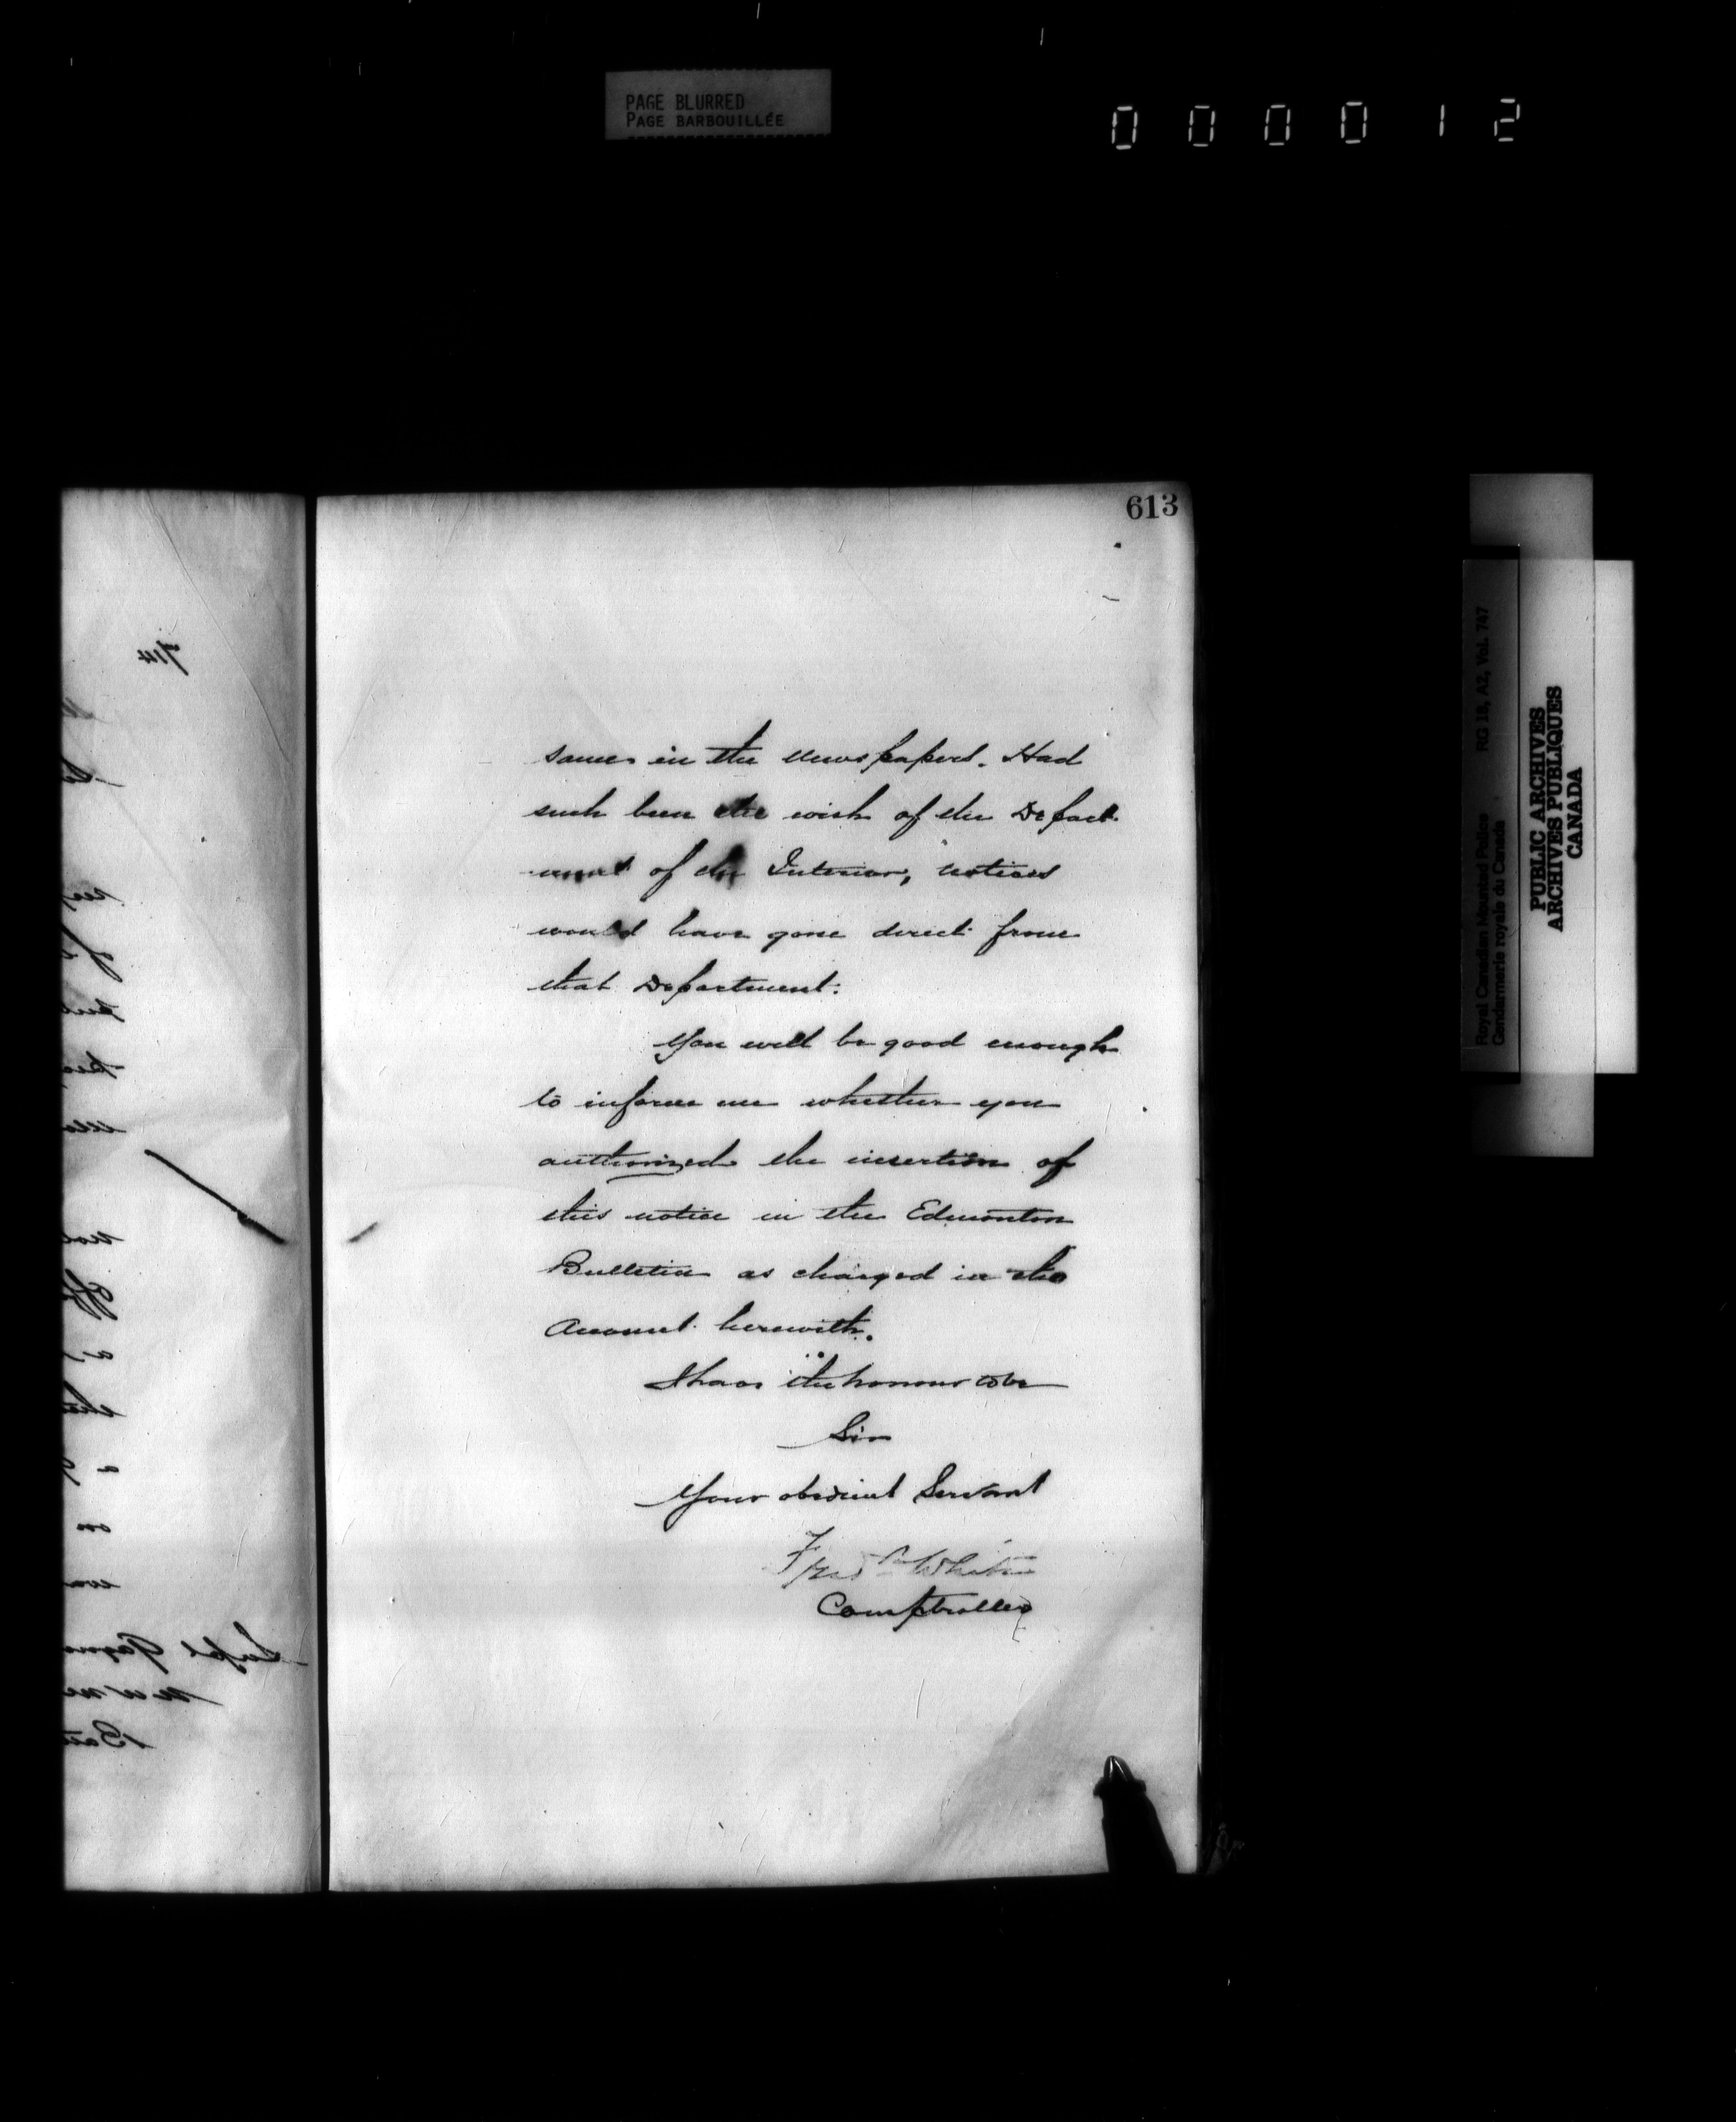 PAGE BLURRED
PAGE BARBOUILLÉE
000012
613
same in the newspapers. Had
such been the wish of the Depart-
ment of the Interior, notices
would have gone direct from
that Department.
You will be good enough
to inform me whether you
authorized the insertion of
this notice in the Edmonton
Bulletin as charged in the
Account herewith.
I have the honour to be
Sir
Your obedient Servant
Fred White
Comptroller
714
Supt Gagno
N W M
Batt
Royal Canadian Mounted Police RG 18, A2, Vol. 747
Gendarmerie royale du Canada
PUBLIC ARCHIVES
ARCHIVES PUBLIQUES
CANADA